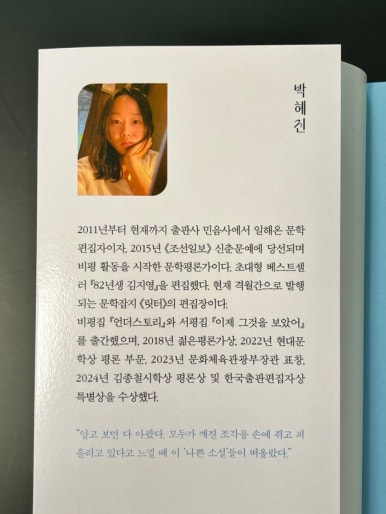 박혜진
2011년부터 현재까지 출판사 민음사에서 일해온 문학
편집자이자, 2015년 《조선일보》 신춘문예에 당선되며
비평 활동을 시작한 문학평론가이다. 초대형 베스트셀
러 『82년생 김지영』을 편집했다. 현재 격월간으로 발행
되는 문학잡지 《릿터》의 편집장이다.
비평집 『언더스토리』와 서평집 『이제 그것을 보았어』
를 출간했으며, 2018년 젊은평론가상, 2022년 현대문
학상 평론 부문, 2023년 문화체육관광부장관 표창,
2024년 김종철시학상 평론상 및 한국출판편집자상
특별상을 수상했다.
“알고 보면 다 아팠다. 모두가 깨진 조각을 손에 쥐고 피
흘리고 있다고 느낄 때 이 ‘나쁜 소설’들이 떠올랐다.”